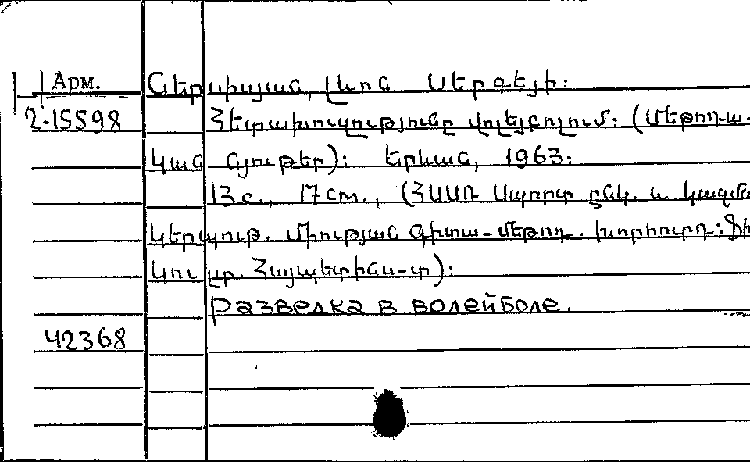 Арм. Ներսիսյան, Լևոն Սերգեյի:
2-15598 Հետախուզությունը վոլեյբոլում: (Մեթոդա-
կան նյութեր): Երևան, 1963:
13 с., 17 см., (ՀՍՍՌ Սպորտ ընկ. և կազմա
կերպութ. միության գիտա-մեթոդ. խորհուրդ: Ֆի
կուլտ. Հայպետինս-տ):
Разведка в волейболе.
42368